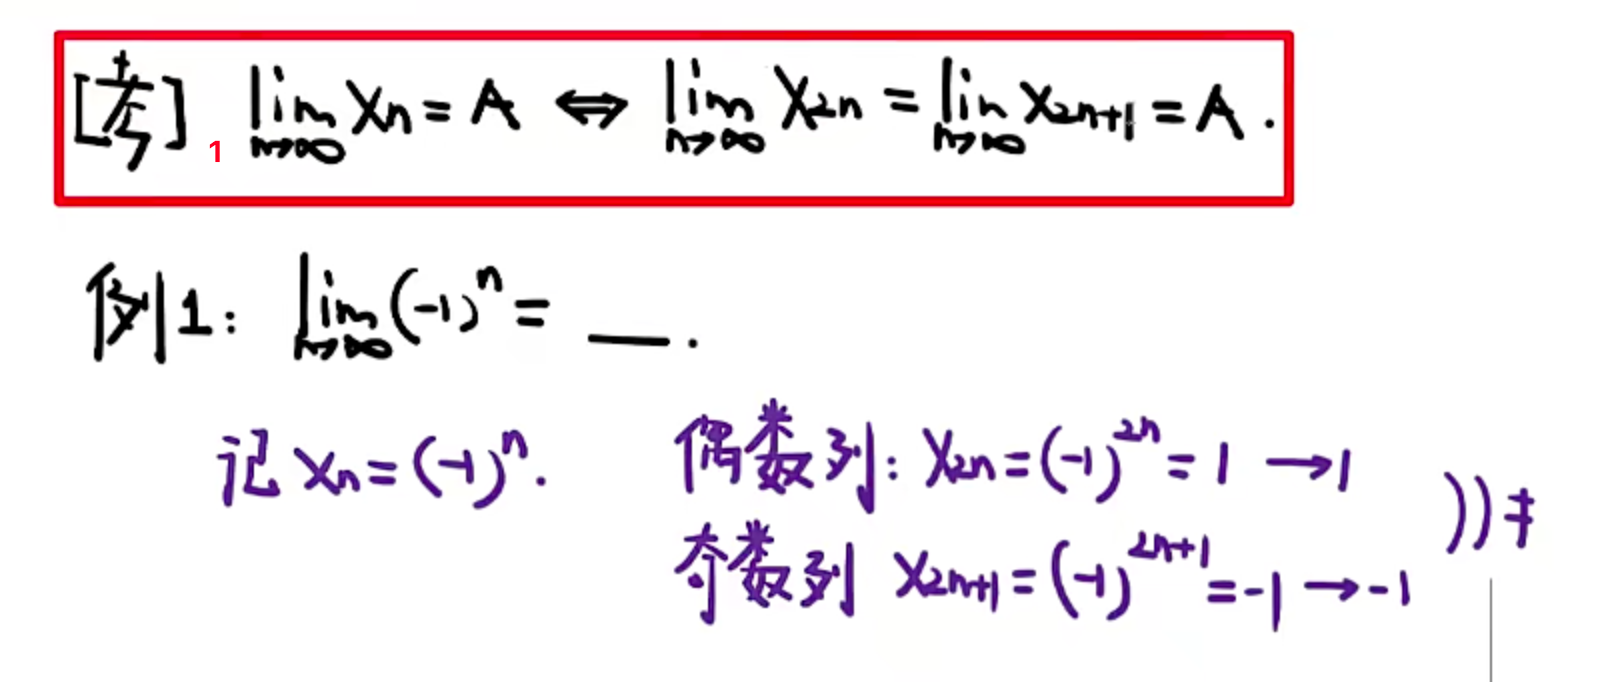 [考] 1 lim n→∞ Xn = A ⇔ lim n→∞ X2n = lim n→∞ X2n+1 = A.
例1: lim n→∞ (-1)^n = __.
记 Xn = (-1)^n. 偶数列: X2n = (-1)^2n = 1 → 1
))≠
奇数列 X2n+1 = (-1)^2n+1 = -1 → -1